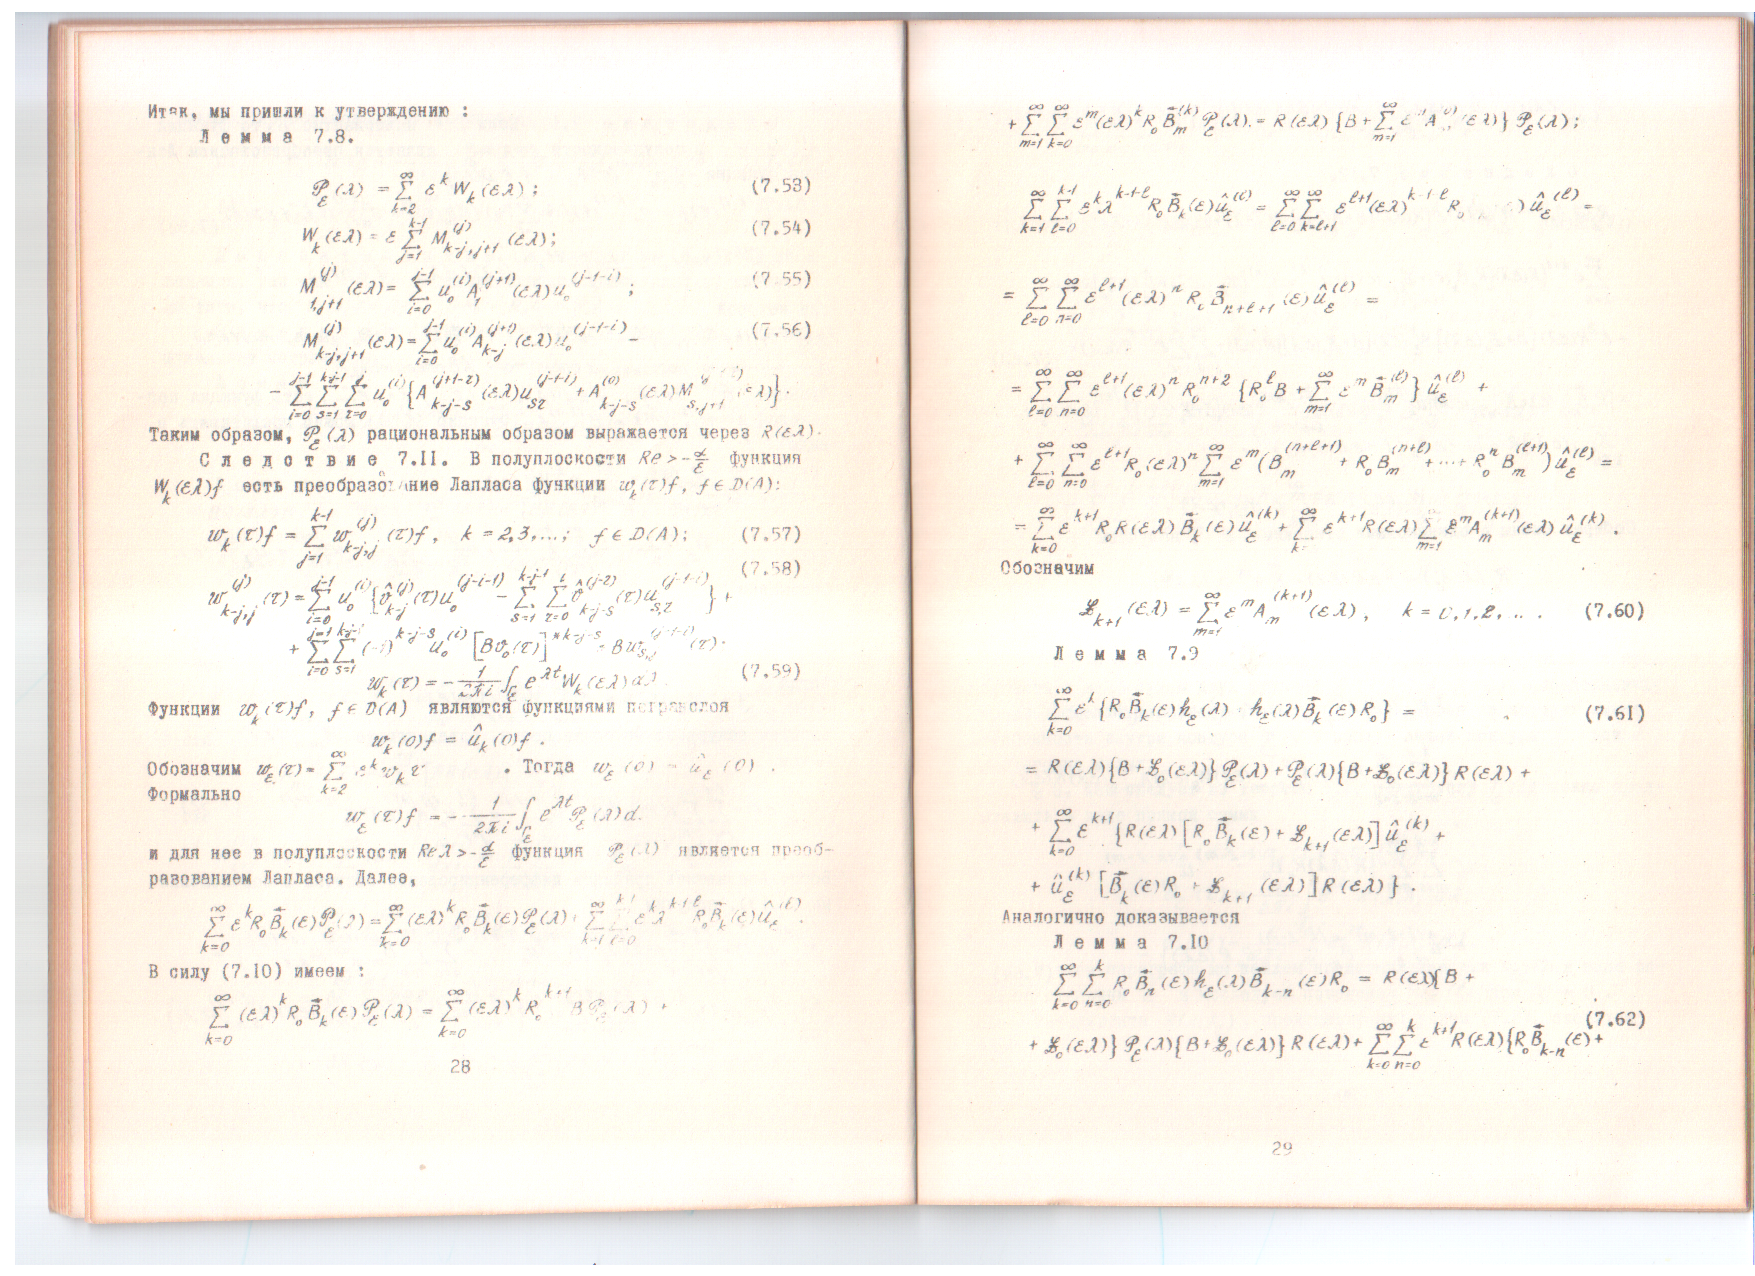 Итак, мы пришли к утверждению :
Л е м м а 7.8.
𝒫_ε(λ) = ∑_{k=2}^{∞} ε^k W_k(ελ) ; (7.53)
W_k(ελ) = ε ∑_{j=1}^{k-1} M_{k-j,j+1}^{(j)}(ελ); (7.54)
M_{1,j+1}^{(j)}(ελ) = ∑_{i=0}^{j-1} u_0^{(i)} A_1^{(j+1)}(ελ) u_0^{(j-1-i)} ; (7.55)
M_{k-j,j+1}^{(j)}(ελ) = ∑_{i=0}^{j-1} u_0^{(i)} A_{k-j}^{(j+1)}(ελ) u_0^{(j-1-i)} − (7.56)
− ∑_{i=0}^{j-1} ∑_{s=1}^{k-j-1} ∑_{τ=0}^{j} u_0^{(i)} {A_{k-j-s}^{(j+1-τ)}(ελ) u_{sτ}^{(j-1-i)} + A_{k-j-s}^{(0)}(ελ) M_{s,j+1} ελ)}.
Таким образом, 𝒫_ε(λ) рациональным образом выражается через R(ελ).
С л е д с т в и е 7.II. В полуплоскости Re > -α/ε функция
W_k(ελ)f есть преобразование Лапласа функции w_k(τ)f, f∈D(A):
w_k(τ)f = ∑_{j=1}^{k-1} w_{k-j,j}^{(j)}(τ)f, k = 2,3,...; f∈D(A); (7.57)
(7.58)
w_{k-j,j}^{(j)}(τ) = ∑_{i=0}^{j-1} u_0^{(i)} {v̂_{k-j}^{(j)}(τ) u_0^{(j-i-1)} − ∑_{s=1}^{k-j-1} ∑_{τ=0} v̂_{k-j-s}^{(j-τ)}(τ) u_{s,τ}^{(j-1-i)}} +
+ ∑_{i=0}^{j-1} ∑_{s=1}^{k-j-1} (-1)^{k-j-s} u_0^{(i)} [Bv_0(τ)]^{*k-j-s} Bw_{s,j}^{(j-1-i)}(τ).
w_k(τ) = − 1/2πi ∫ e^{λt} W_k(ελ)dλ (7.59)
Функции w_k(τ)f, f∈D(A) являются функциями погранслоя
w_k(0)f = û_k(0)f .
Обозначим w_ε(τ) = ∑_{k=2}^{∞} ε^k w_k τ . Тогда w_ε(0) = û_ε(0) .
Формально
w_ε(τ)f = − 1/2πi ∫ e^{λt} 𝒫_ε(λ)d.
и для нее в полуплоскости Reλ > -α/ε функция 𝒫_ε(λ) является преоб-
разованием Лапласа. Далее,
∑_{k=0}^{∞} ε^k R_0 B̄_k(ε)𝒫_ε(λ) = ∑_{k=0}^{∞} (ελ)^k R_0 B̄_k(ε)𝒫_ε(λ) + ∑_{k=1} ∑_{l=0}^{k-1} ε^k λ^{k-1-l} R_0 B̄_k(ε)û_ε^{(l)}.
В силу (7.I0) имеем :
∑_{k=0}^{∞} (ελ)^k R_0 B̄_k(ε)𝒫_ε(λ) = ∑_{k=0}^{∞} (ελ)^k R_0^{k+1} B𝒫_ε(λ) +
28
+ ∑_{m=1}^{∞} ∑_{k=0}^{∞} ε^m (ελ)^k R_0 B̄_m^{(k)} 𝒫_ε(λ) = R(ελ) {B + ∑_{m=1}^{∞} ε^m A^{(0)}(ελ)} 𝒫_ε(λ);
∑_{k=1}^{∞} ∑_{l=0}^{k-1} ε^k λ^{k-1-l} R_0 B̄_k(ε)û_ε^{(l)} = ∑_{l=0}^{∞} ∑_{k=l+1}^{∞} ε^{l+1}(ελ)^{k-1-l} R_0 ) û_ε^{(l)} =
= ∑_{l=0}^{∞} ∑_{n=0}^{∞} ε^{l+1}(ελ)^n R_0 B̄_{n+l+1}(ε)û_ε^{(l)} =
= ∑_{l=0}^{∞} ∑_{n=0}^{∞} ε^{l+1}(ελ)^n R_0^{n+2} {R_0^l B + ∑_{m=1}^{∞} ε^m B̄_m^{(l)}} û_ε^{(l)} +
+ ∑_{l=0}^{∞} ∑_{n=0}^{∞} ε^{l+1} R_0(ελ)^n ∑_{m=1}^{∞} ε^m (B_m^{(n+l+1)} + R_0 B_m^{(n+l)} + ... + R_0^n B_m^{(l+1)}) û_ε^{(l)} =
= ∑_{k=0}^{∞} ε^{k+1} R_0 R(ελ) B̄_k(ε)û_ε^{(k)} + ∑_{k=}^{∞} ε^{k+1} R(ελ) ∑_{m=1} ε^m A_m^{(k+1)}(ελ) û_ε^{(k)} .
Обозначим
ℒ_{k+1}(ελ) = ∑_{m=1}^{∞} ε^m A_m^{(k+1)}(ελ), k = 0,1,2,... (7.60)
Л е м м а 7.9
∑_{k=0}^{∞} ε^k {R_0 B̄_k(ε)h_ε(λ) + h_ε(λ)B̄_k(ε)R_0} = (7.6I)
= R(ελ){B + ℒ_0(ελ)} 𝒫_ε(λ) + 𝒫_ε(λ){B + ℒ_0(ελ)} R(ελ) +
+ ∑_{k=0}^{∞} ε^{k+1} {R(ελ) [R_0 B̄_k(ε) + ℒ_{k+1}(ελ)] û_ε^{(k)} +
+ û_ε^{(k)} [B̄_k(ε)R_0 + ℒ_{k+1}(ελ)] R(ελ)} .
Аналогично доказывается
Л е м м а 7.I0
∑_{k=0}^{∞} ∑_{n=0}^{k} R_0 B̄_n(ε)h_ε(λ)B̄_{k-n}(ε)R_0 = R(ελ){B +
(7.62)
+ ℒ_0(ελ)} 𝒫_ε(λ){B + ℒ_0(ελ)} R(ελ) + ∑_{k=0}^{∞} ∑_{n=0}^{k} ε^{k+1} R(ελ){R_0 B̄_{k-n}(ε) +
29